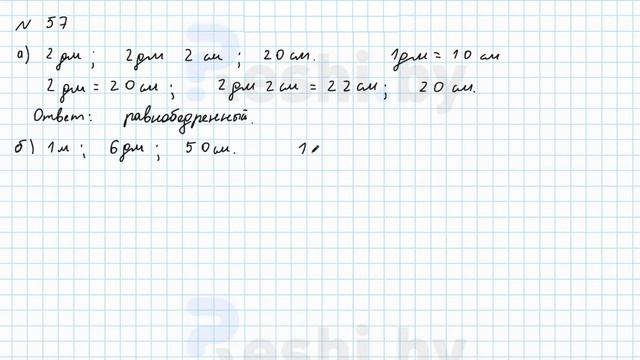 N 57
а) 2 дм ; 2дм 2 см ; 20 см. 1дм = 10 см
2 дм = 20 см ; 2 дм 2 см = 22 см ; 20 см.
Ответ: равнобедренный.
б) 1 м ; 6 дм ; 50 см. 1
eshi.by
eshi.by